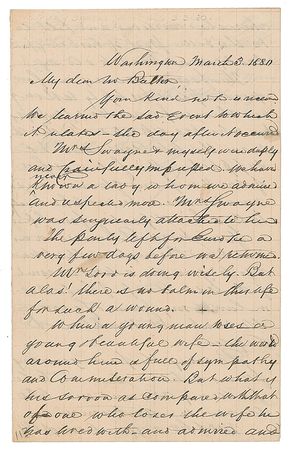 Washington March 3. 1880
My dear Mr Butler
Your kind note is recd
We learned the sad event to which
it relates - the day after it occurred
Mrs Swayne & myself were deeply
and painfully impressed. We have
never
known a lady whom we admired
and respected more. Mrs Swayne
was singularly attached to her
the party left for Europe a
very few days before we returned.
Mr Lord is doing wisely. But
alas! there is no balm in this life
for such a wound.
When a young man loses a
young & beautiful wife - the world
around him is full of sympathy
and commiseration. But what is
his sorrow as compared with that
of one who loses the wife he
has lived with - and admired and